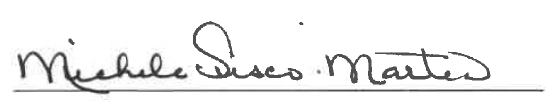 Michele Sisco Martin